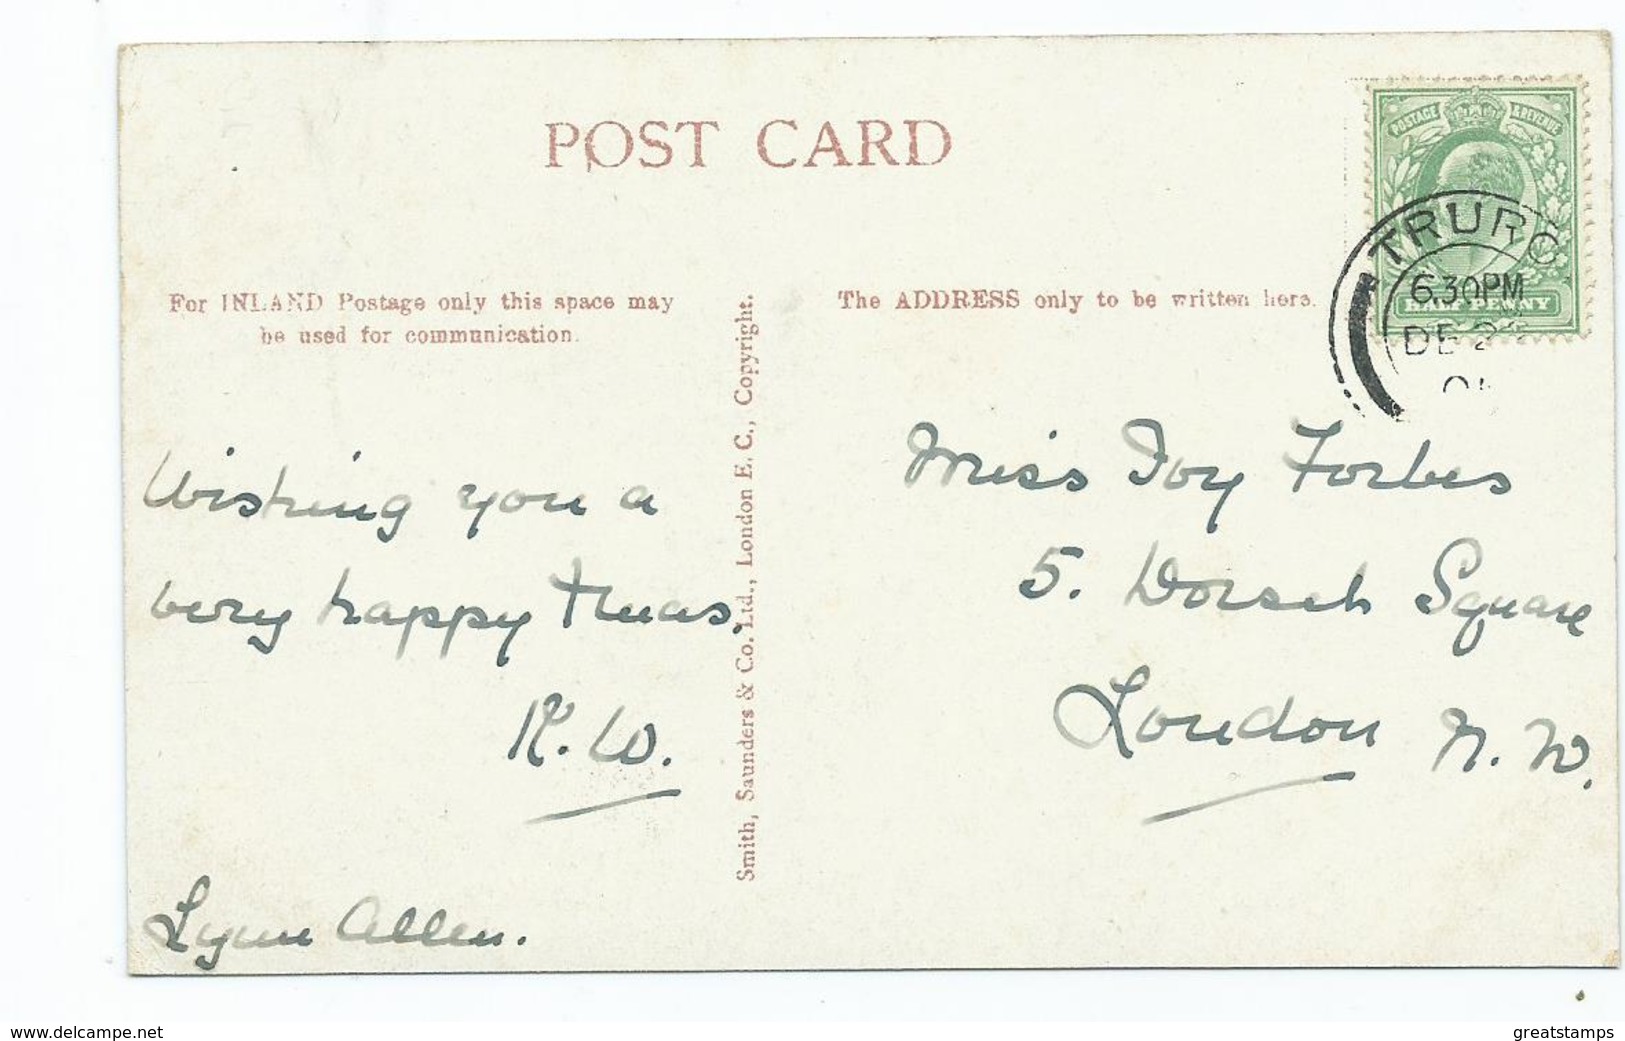 POST CARD
POSTAGE & REVENUE
TRURO
6 30 PM
DE 2
HALFPENNY
For INLAND Postage only this space may
be used for communication.
The ADDRESS only to be written here.
Smith, Saunders & Co. Ltd., London E. C., Copyright.
Wishing you a
very happy Xmas.
K. W.
Lynn Allen.
Miss Joy Forbes
5. Dorset Square
London N. W.
www.delcampe.net
greatstamps